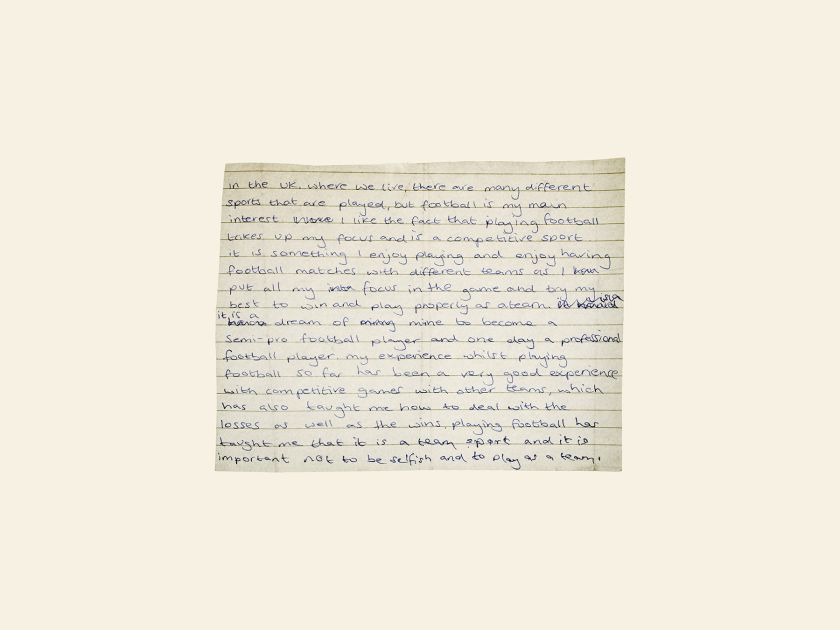 in the UK. where we live, there are many different
sports that are played, but football is my main
interest. I like the fact that playing football
takes up my focus and is a competitive sport.
it is something I enjoy playing and enjoy having
football matches with different teams as I
put all my focus in the game and try my
best to win and play properly as a team.
it is a
dream of mine to become a
semi-pro football player and one day a professional
football player. my experience whilst playing
football so far has been a very good experience
with competitive games with other teams, which
has also taught me how to deal with the
losses as well as the wins, playing football has
taught me that it is a team sport and it is
important not to be selfish and to play as a team.